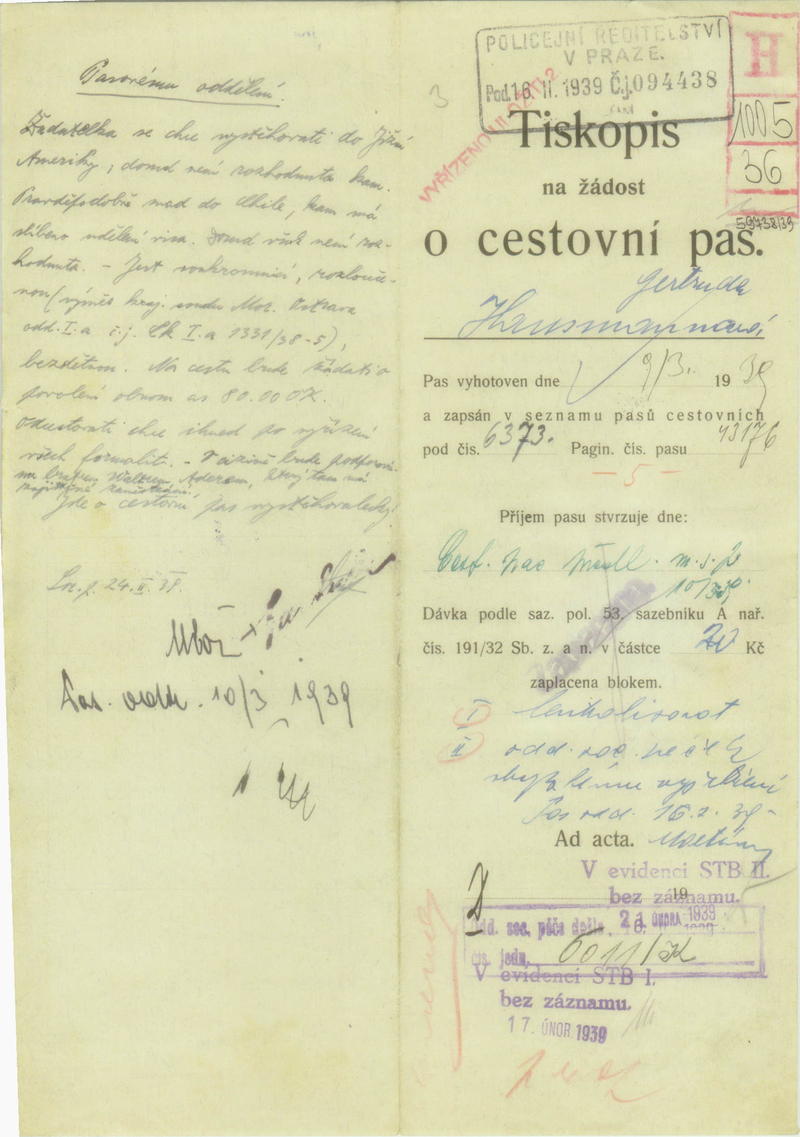 Pasovému oddělení.
Žadatelka se chce vystěhovati do Jižní
Ameriky, dosud není rozhodnuto kam.
Pravděpodobně snad do Chile, kam má
slíbeno udělení visa. Dosud však není roz-
hodnuta. – Jest soukromnicí, rozlouče-
nou (výměr kraj. soudu Mor. Ostrava
odd. I.a č.j. Ck I.a 1331/38-5),
bezdětnou. Na cestu bude žádati o
povolení obnosu as 80.000 K.
Odcestovati chce ihned po vyřízení
všech formalit. – V cizině bude podporová-
na bratrem Walterem Aderem, který tam má
zajištěné zaměstnání.
Jde o cestovní pas vystěhovalecký.
24. II. 39.
Pas. odd. 10/3 1939
POLICEJNÍ ŘEDITELSTVÍ
V PRAZE.
Pod. 16. II. 1939 Č.j. 094438
H
1005
36
59738/39
3
Tiskopis
na žádost
o cestovní pas.
Gertruda
Hausmannová
Pas vyhotoven dne 9/3. 1939
a zapsán v seznamu pasů cestovních
pod čís. 6373. Pagin. čís. pasu 43176
– 5 –
Příjem pasu stvrzuje dne:
10/3 39
Dávka podle saz. pol. 53. sazebníku A nař.
čís. 191/32 Sb. z. a n. v částce 20 Kč
zaplacena blokem.
I
II odd. soc. péče k
Pas odd. 16.2.39
Ad acta.
V evidenci STB II.
bez záznamu.
19
21 ÚNORA 1939
Odd. soc. péče došlo
čís. jedn. 6011/
V evidenci STB I.
bez záznamu.
17. ÚNOR 1939